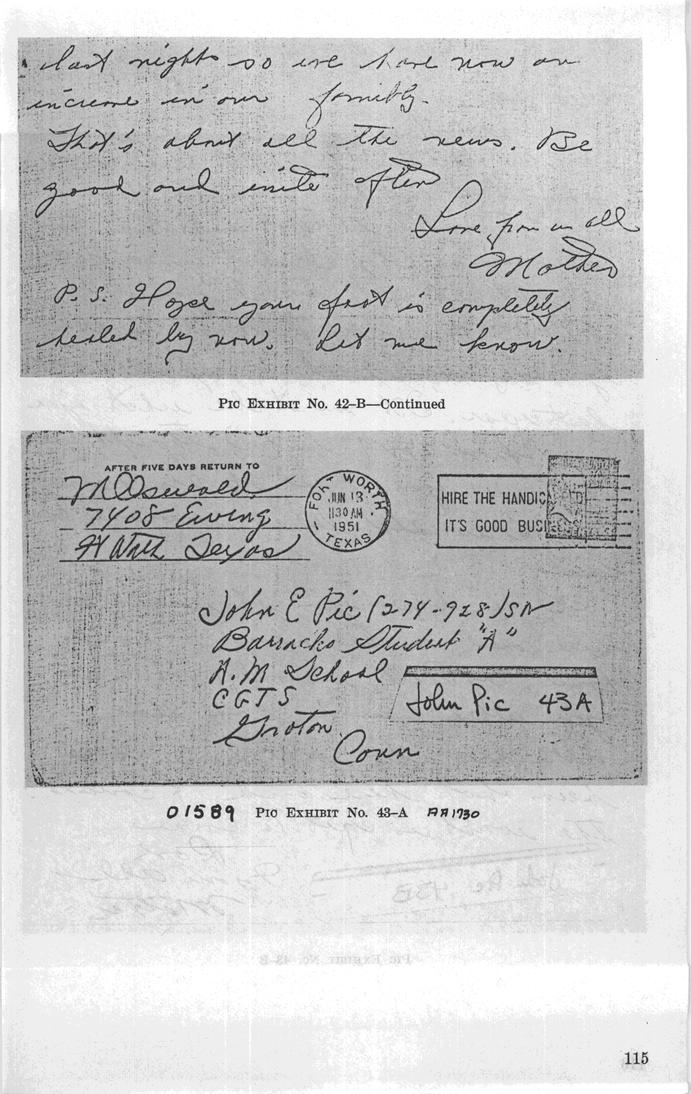 last nights so we have now an
increase in our familly.
That's about all the news. Be
good and write often
Love from us all
Mother
P. S. Hope your foot is completely
healed by now. Let me know.
PIC EXHIBIT No. 42-B—Continued
AFTER FIVE DAYS RETURN TO
M Oswald
7408 Ewing
Ft Worth Texas
FORT WORTH
JUN 13
1130 AM
1951
TEXAS
HIRE THE HANDICAPPED
IT'S GOOD BUSINESS
John E Pic (274-928) SN
Barracks Student "A"
A.M School
CGTS
Groton
Conn
John Pic 43A
01589 PIC EXHIBIT No. 43-A
115